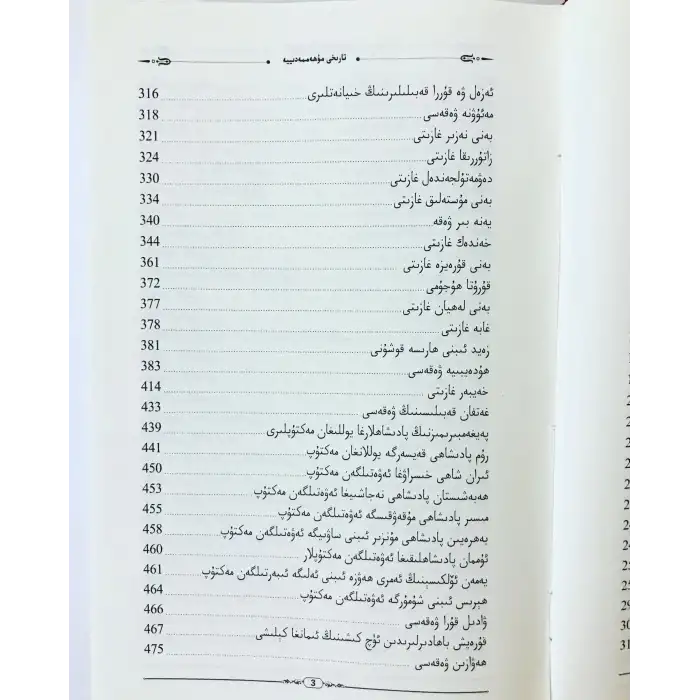 تارىخى مۇھەممەدىييە
ئەزەل ۋە قۇررا قەبىلىلىرىنىڭ خىيانەتلىرى 316
مەئۇۋنە ۋەقەسى 318
بەنى نەزىر غازىتى 321
زاتۇررىقا غازىتى 324
دەۋمەتۇلجەندەل غازىتى 330
بەنى مۇستەلىق غازىتى 334
يەنە بىر ۋەقە 340
خەندەك غازىتى 344
بەنى قۇرەيزە غازىتى 361
قۇرۇتا ھۇجۇمى 372
بەنى لەھيان غازىتى 377
غابە غازىتى 378
زەيد ئىبنى ھارىسە قوشۇنى 381
ھۇدەيبىيە ۋەقەسى 383
خەيبەر غازىتى 414
غەتفان قەبىلىسىنىڭ ۋەقەسى 433
پەيغەمبىرىمىزنىڭ پادىشاھلارغا يوللىغان مەكتۇپلىرى 439
رۇم پادىشاھى قەيسەرگە يوللانغان مەكتۇپ 441
ئىران شاھى خىسراۋغا ئەۋەتىلگەن مەكتۇپ 450
ھەبەشىستان پادىشاھى نەجاشىيغا ئەۋەتىلگەن مەكتۇپ 453
مىسىر پادىشاھى مۇقەۋقىسگە ئەۋەتىلگەن مەكتۇپ 455
بەھرەيىن پادىشاھى مۇنزىر ئىبنى ساۋىيگە ئەۋەتىلگەن مەكتۇپ 458
ئۇممان پادىشاھلىقىغا ئەۋەتىلگەن مەكتۇپلار 460
يەمەن ئۆلكىسىنىڭ ئەمرى ھەۋزە ئىبنى ئەلىگە ئىبەرتىلگەن مەكتۇپ 461
ھېرىس ئىبنى شۇمۇرگە ئەۋەتىلگەن مەكتۇپ 464
ۋادىل قۇرا ۋەقەسى 466
قۇرەيش باھادىرلىرىدىن ئۈچ كىشىنىڭ ئىمانغا كېلىشى 467
ھەۋازىن ۋەقەسى 475
3